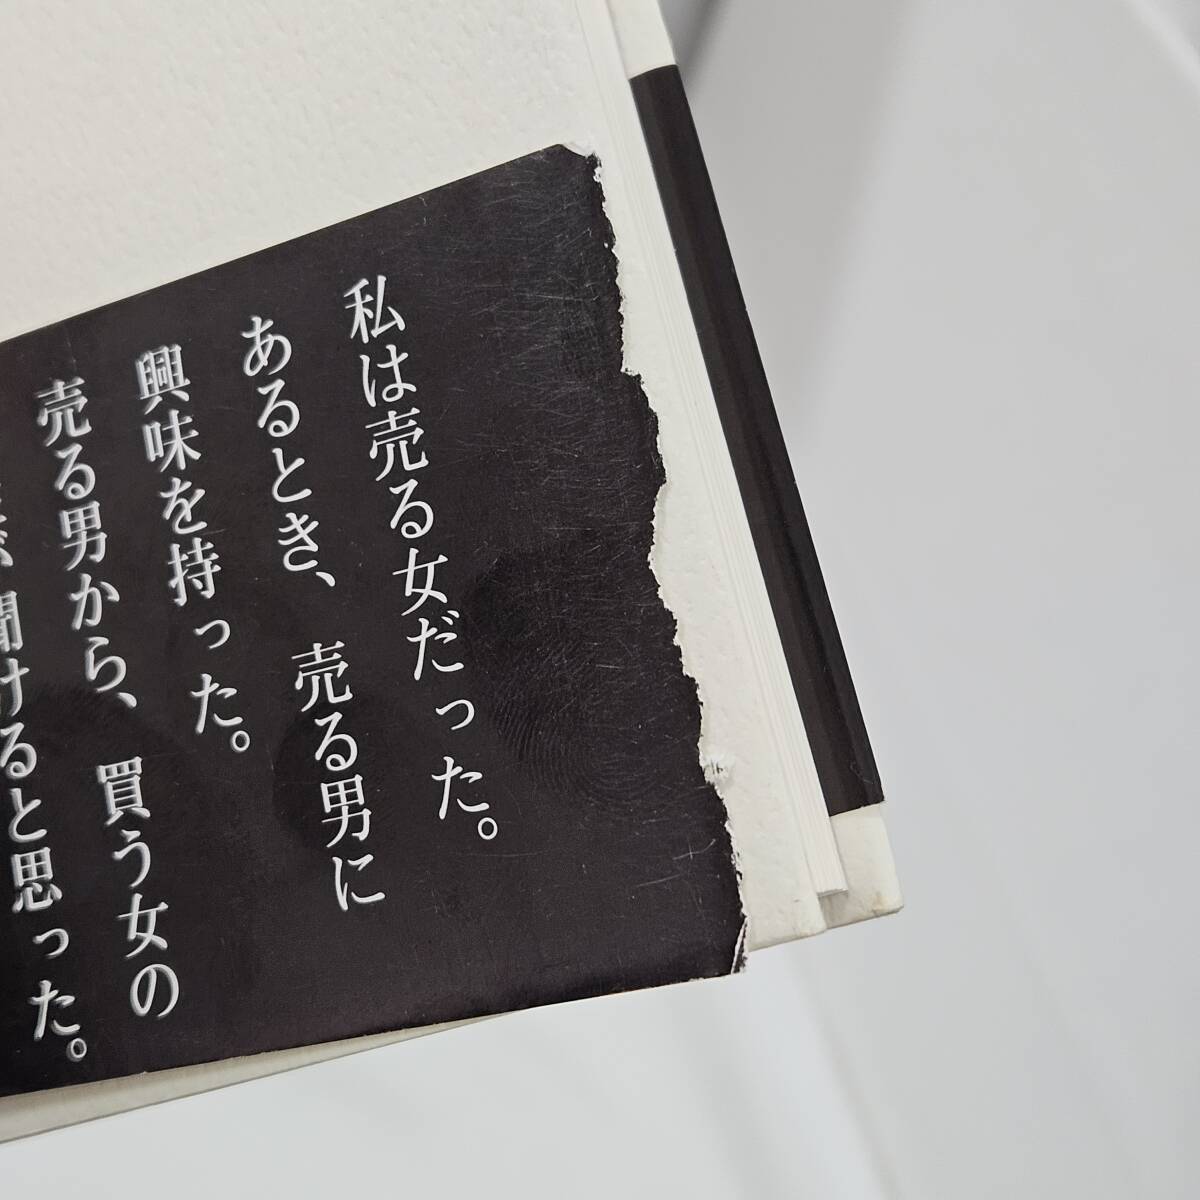 私は売る女だった。
あるとき、売る男に
興味を持った。
売る男から、買う女の
が聞けると思った。